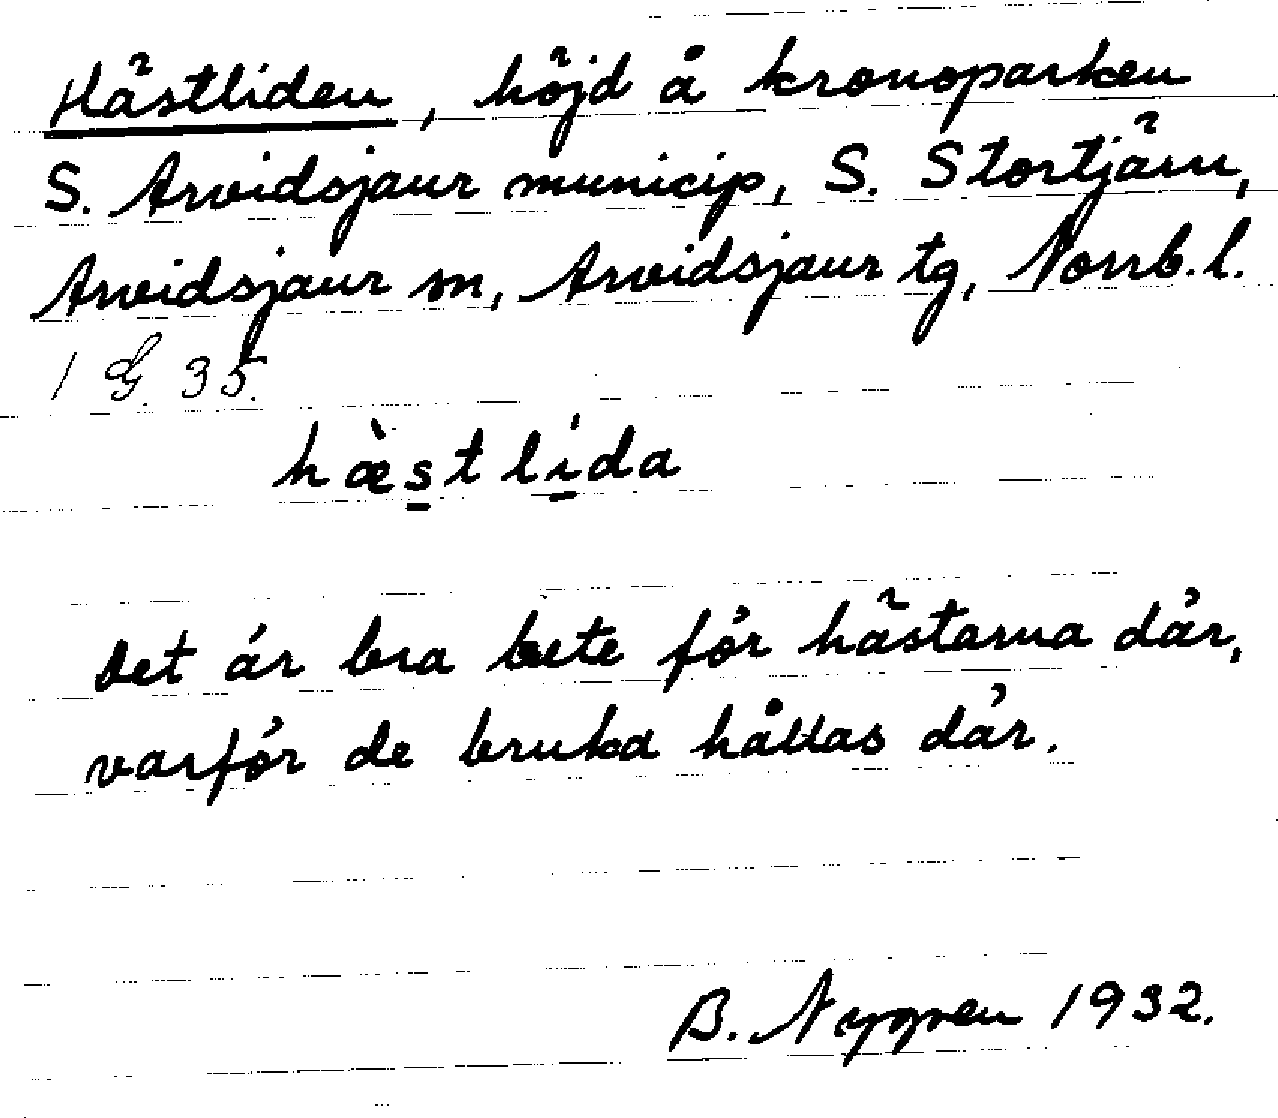 Hästliden, höjd å kronoparken
S. Arvidsjaur municip, S. Stortjärn,
Arvidsjaur sn, Arvidsjaur tg, Norrb. l.
1 G. 35.
hæ̀s̲t lí̲da
Det är bra bete för hästarna där,
varför de bruka hållas där.
B. Nygren 1932.